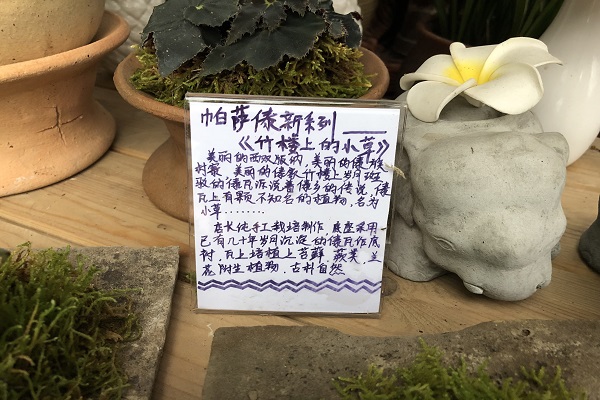 帕萨傣新系列___
《竹楼上的小草》
美丽的西双版纳,美丽的傣族
村寨,美丽的傣家竹楼上岁月斑
驳的傣瓦诉说着傣乡的传说,傣
瓦上有颗不知名的植物,名为
小草........
店长纯手工栽培制作,底座采用
已有几十年岁月沉淀的傣瓦作底
衬,瓦上培植上苔藓、蕨类、兰
花附生植物,古朴自然